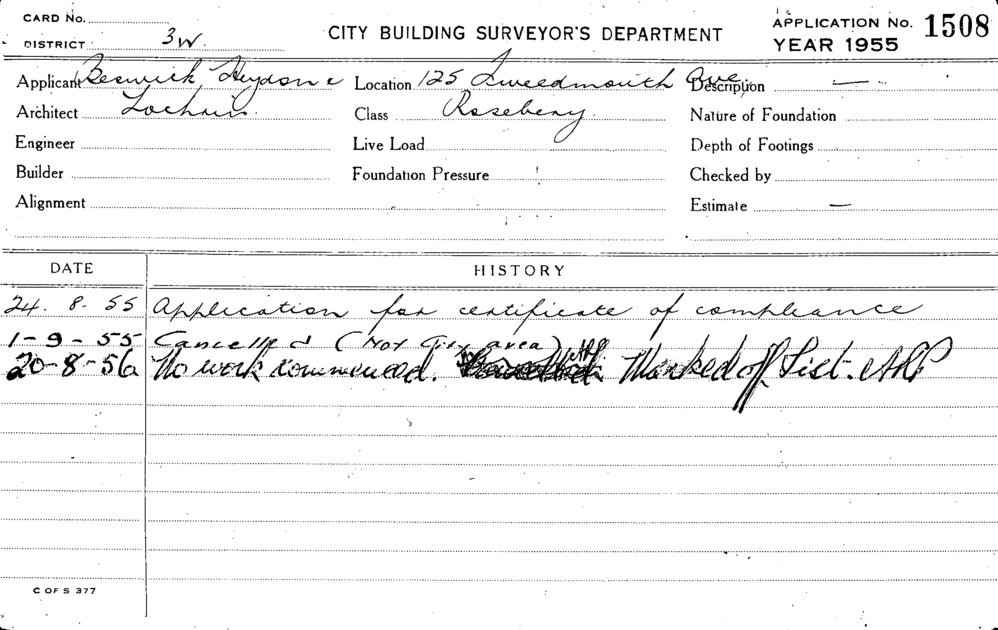 CARD No.
DISTRICT 3W.
CITY BUILDING SURVEYOR'S DEPARTMENT
APPLICATION No. 1508
YEAR 1955
Applicant Beswick Heydon &
Location 125 Tweedmouth Ave,
Description —
Architect
Class Rosebery
Nature of Foundation
Engineer
Live Load
Depth of Footings
Builder
Foundation Pressure
Checked by
Alignment
Estimate —
DATE HISTORY
24. 8. 55 Application for certificate of compliance
1-9-55 Cancelled (Not City area)
20-8-56 No work commenced. Marked off List.
C OF S 377